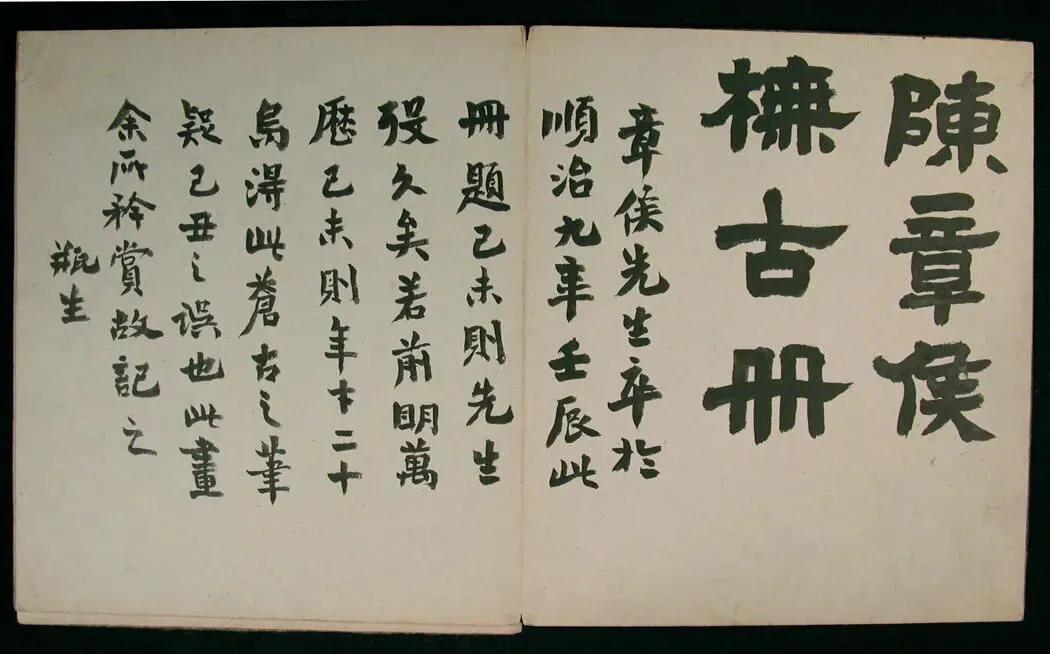 陳章侯
橅古冊
章侯先生卒於
順治九年壬辰此
冊題己未則先生
歿久矣若前明萬
歷己未則年才二十
烏得此蒼古之筆
疑己丑之誤也此畫
余所矜賞故記之
瓶生